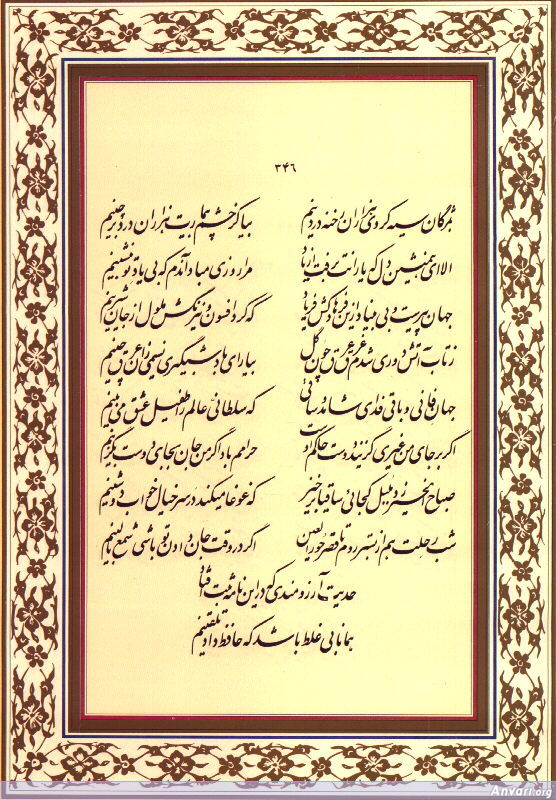 ۳۴۶
بمژگان سیه کردی هزاران رخنه در دینم بیا کز چشم بیمارت هزاران درد برچینم
الا ای همنشین دل که یارانت برفت از یاد مرا روزی مباد آندم که بی یاد تو بنشینم
جهان پیرست و بی بنیاد ازین فرهادکش فریاد که کرد افسون و نیرنگش ملول از جان شیرینم
ز تاب آتش دوری شدم غرق عرق چون گل بیار ای باد شبگیری نسیمی زان عرق چینم
جهان فانی و باقی فدای شاهد و ساقی که سلطانی عالم را طفیل عشق می بینم
اگر بر جای من غیری گزیند دوست حاکم اوست حرامم باد اگر من جان بجای دوست بگزینم
صباح الخیر زد بلبل کجائی ساقیا برخیز که غوغا میکند در سر خیال خواب دوشینم
شب رحلت هم از بستر روم تا قصر حورالعین اگر در وقت جان دادن تو باشی شمع بالینم
حدیث آرزومندی که در این نامه ثبت افتاد
همانا بی غلط باشد که حافظ داد تلقینم
Anvari.org